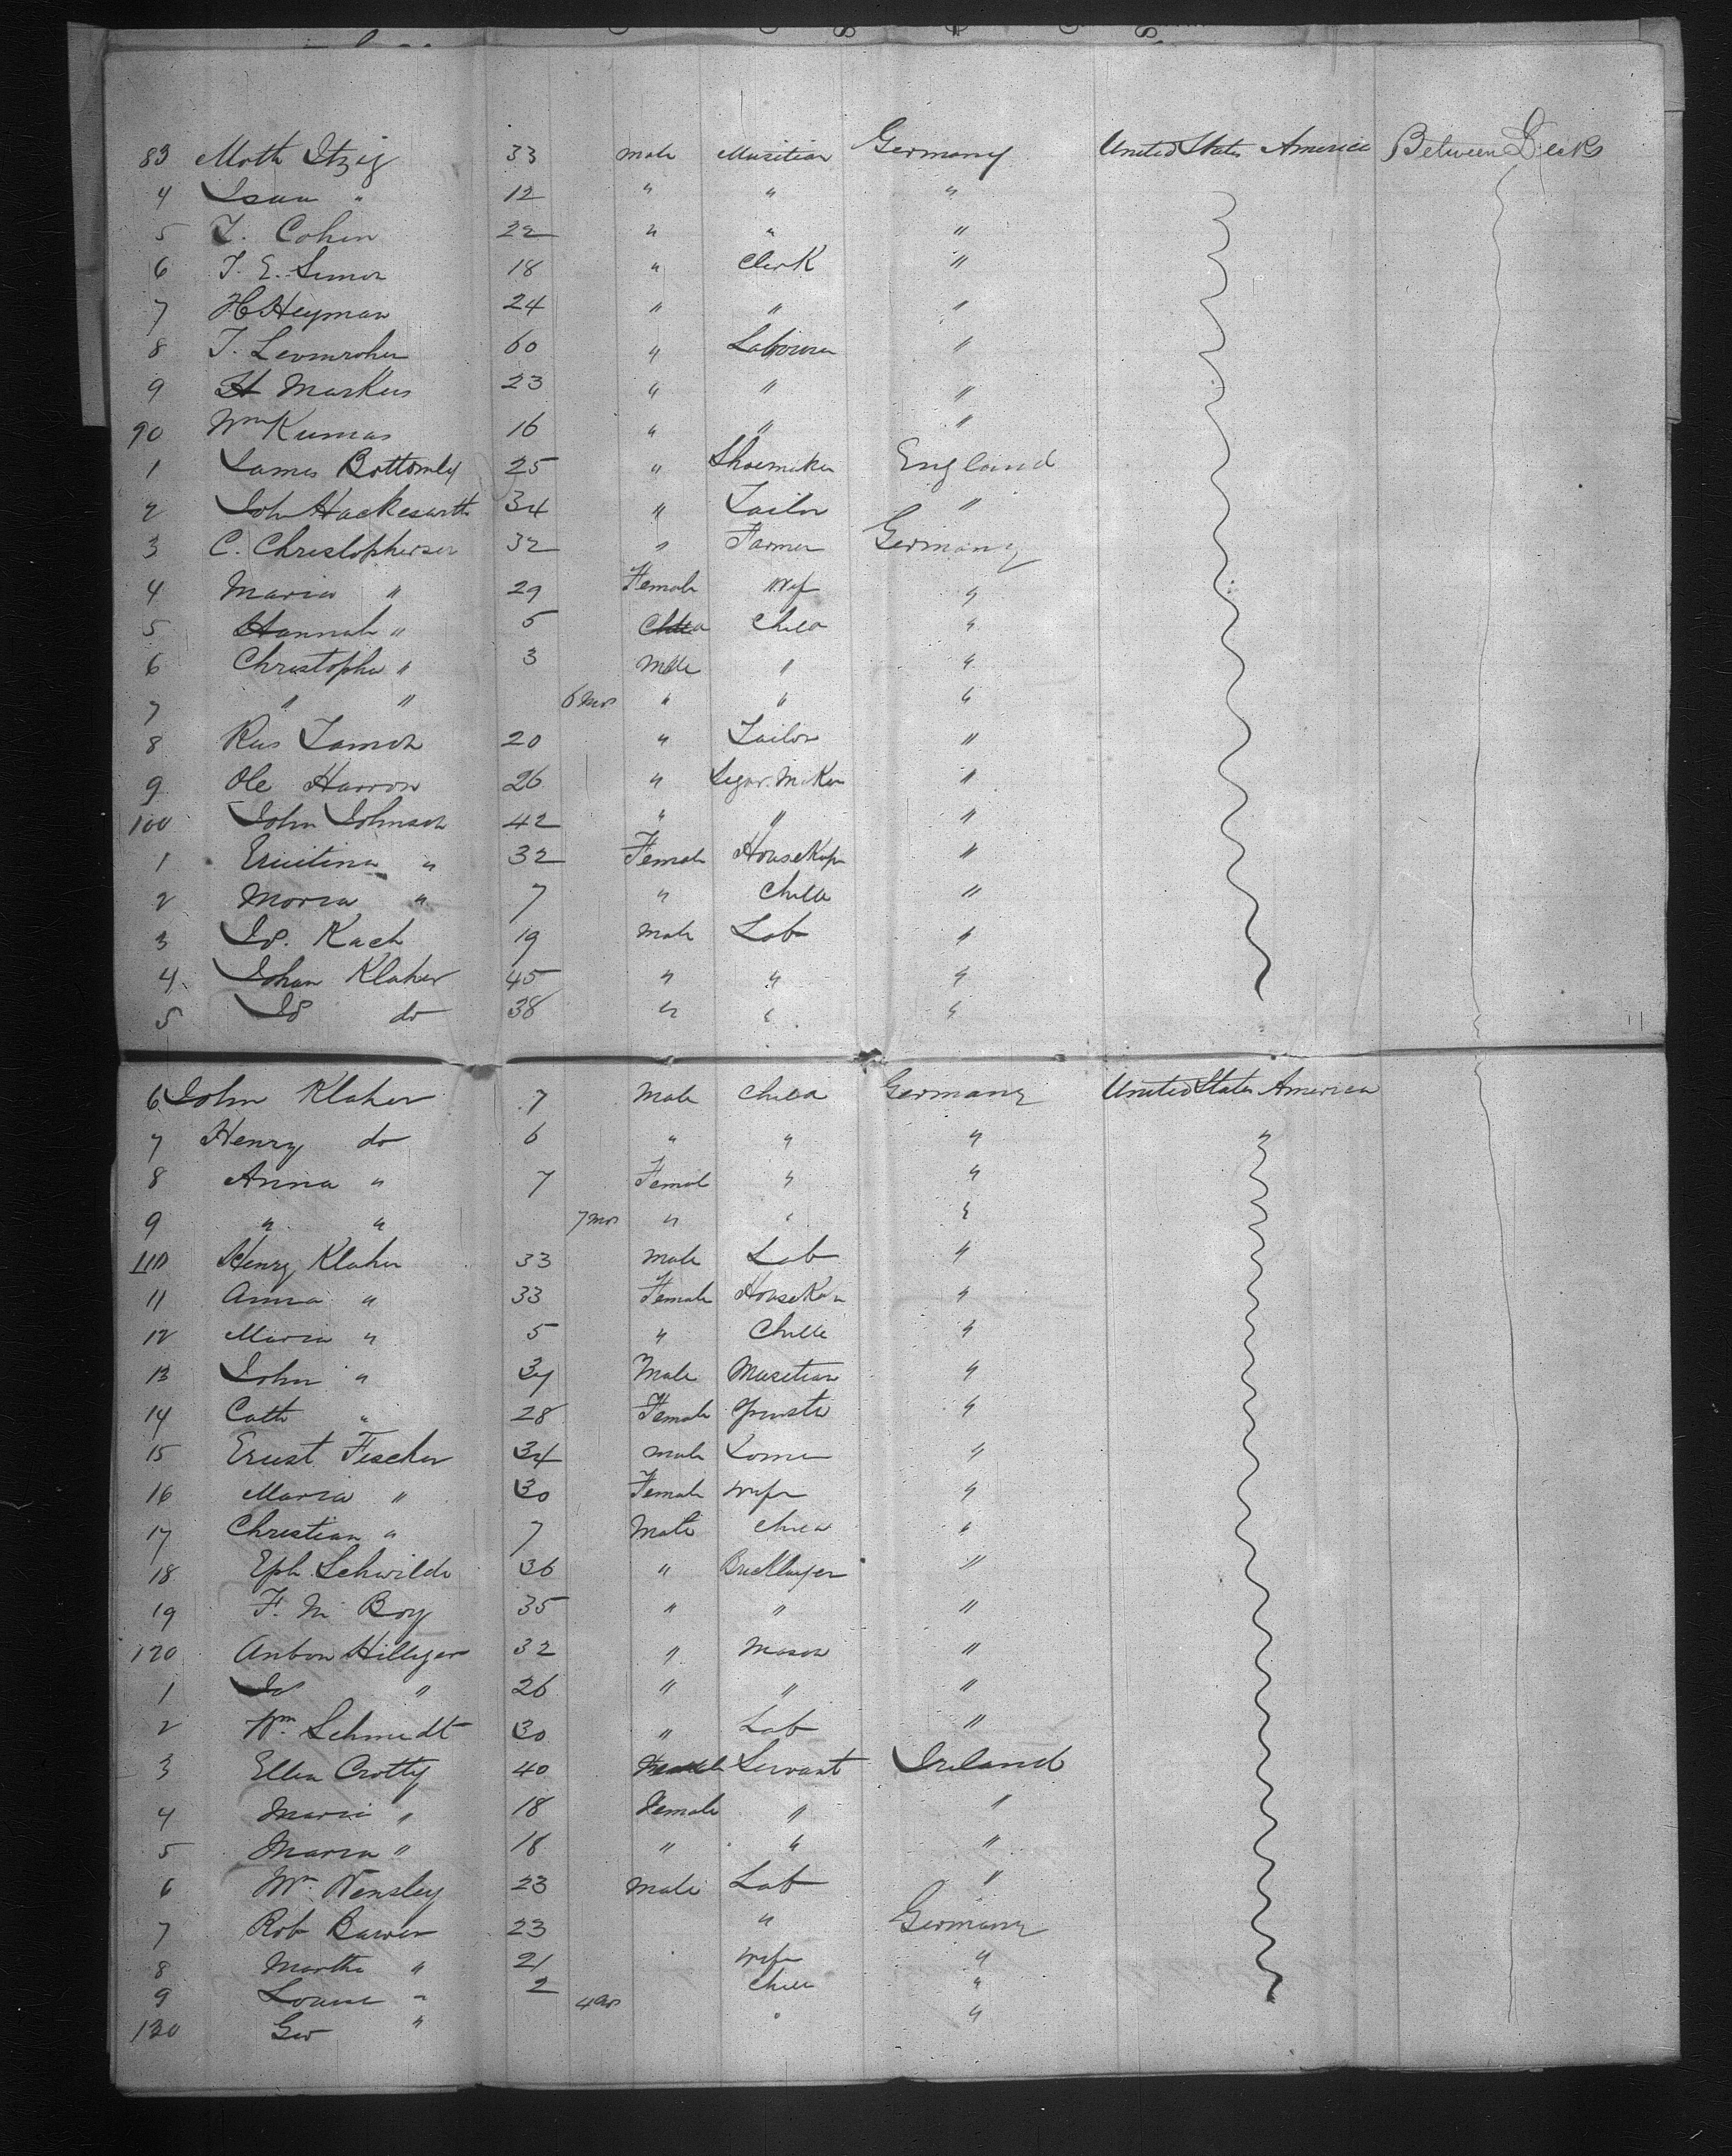 83 Moth Itzig 33 male Musitian Germany United States America Between Decks
4 Isaac " 12 " " "
5 I. Cohen 22 " " "
6 I. E. Simon 18 " Clerk "
7 H Heyman 24 " " "
8 I. 60 " Labourer "
9 H Markus 23 " " "
90 Wm Kumas 16 " " "
1 James Bottomley 25 " Shoemaker England
2 Joh Hackesworth 34 " Tailor "
3 C. Christophersen 32 " Farmer Germany
4 Maria " 29 Female Wif "
5 Hannah " 5 Child "
6 Christopher " 3 Male " "
7 " " 6 Mos " " "
8 20 " Tailor "
9 Ole Harron 26 " Segar Maker "
100 John Johnson 42 " " "
1 " 32 Female Housekeper "
2 Maria " 7 " Child "
3 Jos. Kach 19 Male Lab "
4 Johan Klaher 45 " " "
5 do 38 " " "
6 John Klaher 7 Male Child Germany United States America
7 Henry do 6 " " " "
8 Anna " 7 Femal " "
9 " " 7 mos " " "
110 Henry Klaher 33 male Lab "
11 Anna " 33 Female "
12 Maria " 5 " Child "
13 John " 34 Male Musitian "
14 Cath " 28 Female "
15 Ernst Fischer 34 male "
16 Maria " 30 Female wife "
17 Christian " 7 Male Child "
18 Eph Schwilde 36 " Bricklayer "
19 F. M. Boy 35 " " "
120 Anton Hilliger 32 " Mason "
1 " 26 " " "
2 Wm Schmidt 30 " Lab "
3 Ellen Crotty 40 Servant Ireland
4 Maria " 18 Female " "
5 Maria " 18 " " "
6 Wm Wensley 23 Male Lab "
7 Rob Bawer 23 " Germany
8 Martha " 21 wife "
9 Louise " 2 Child "
130 Geo " 4 "